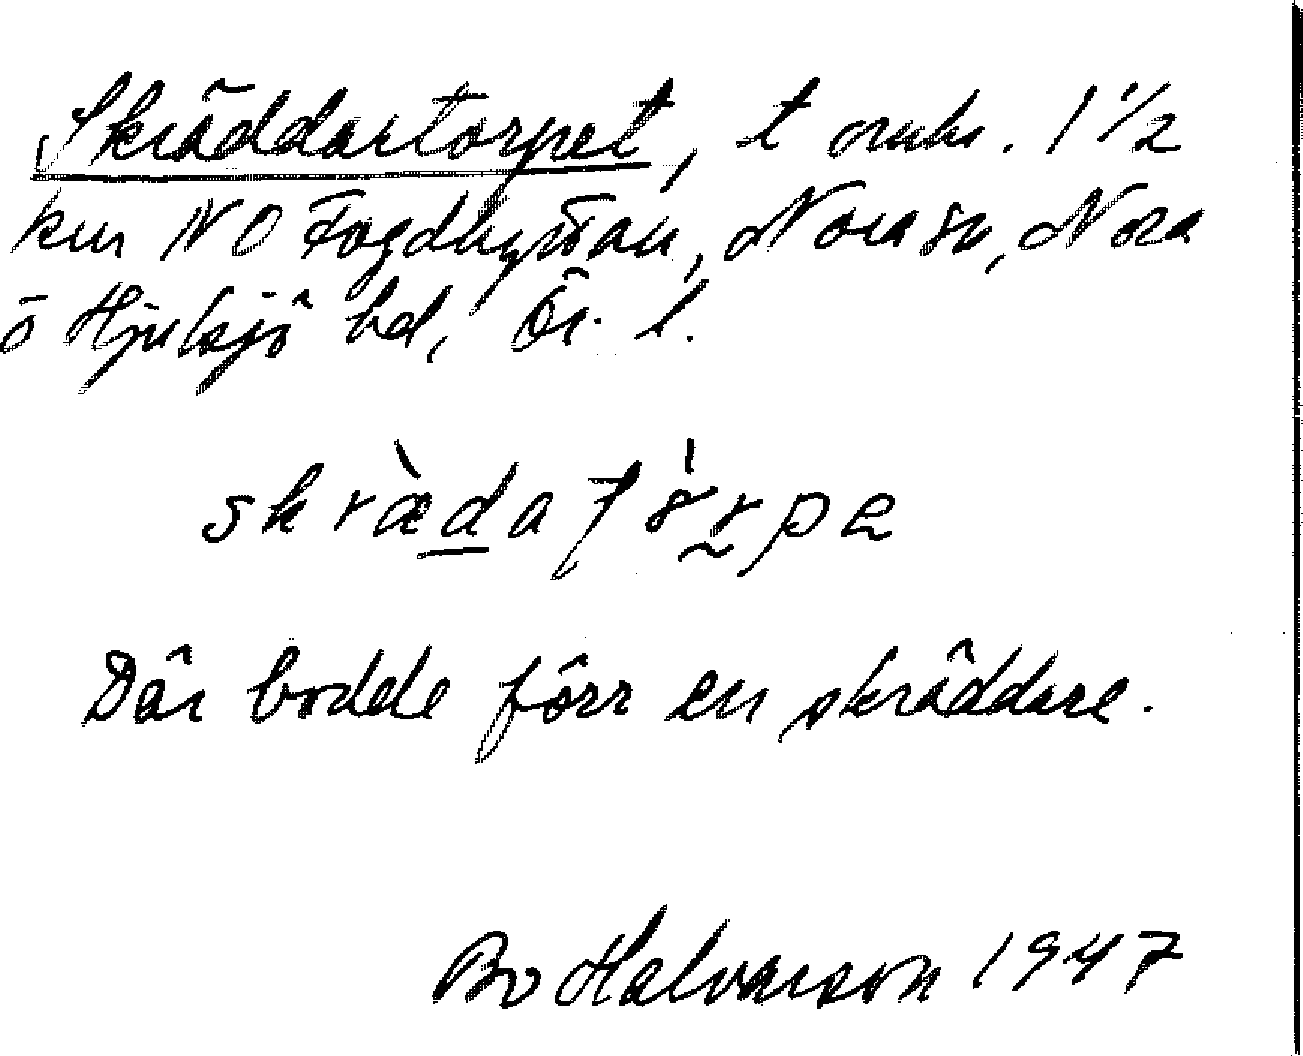 Skräddartorpet, t omkr. 1 1/2
km NO Fogdhyttan, Nora sn, Nora
o Hjulsjö bd, Ör. l.
skræ̀datö́rpe
Där bodde förr en skräddare.
Bo Halvarson 1947